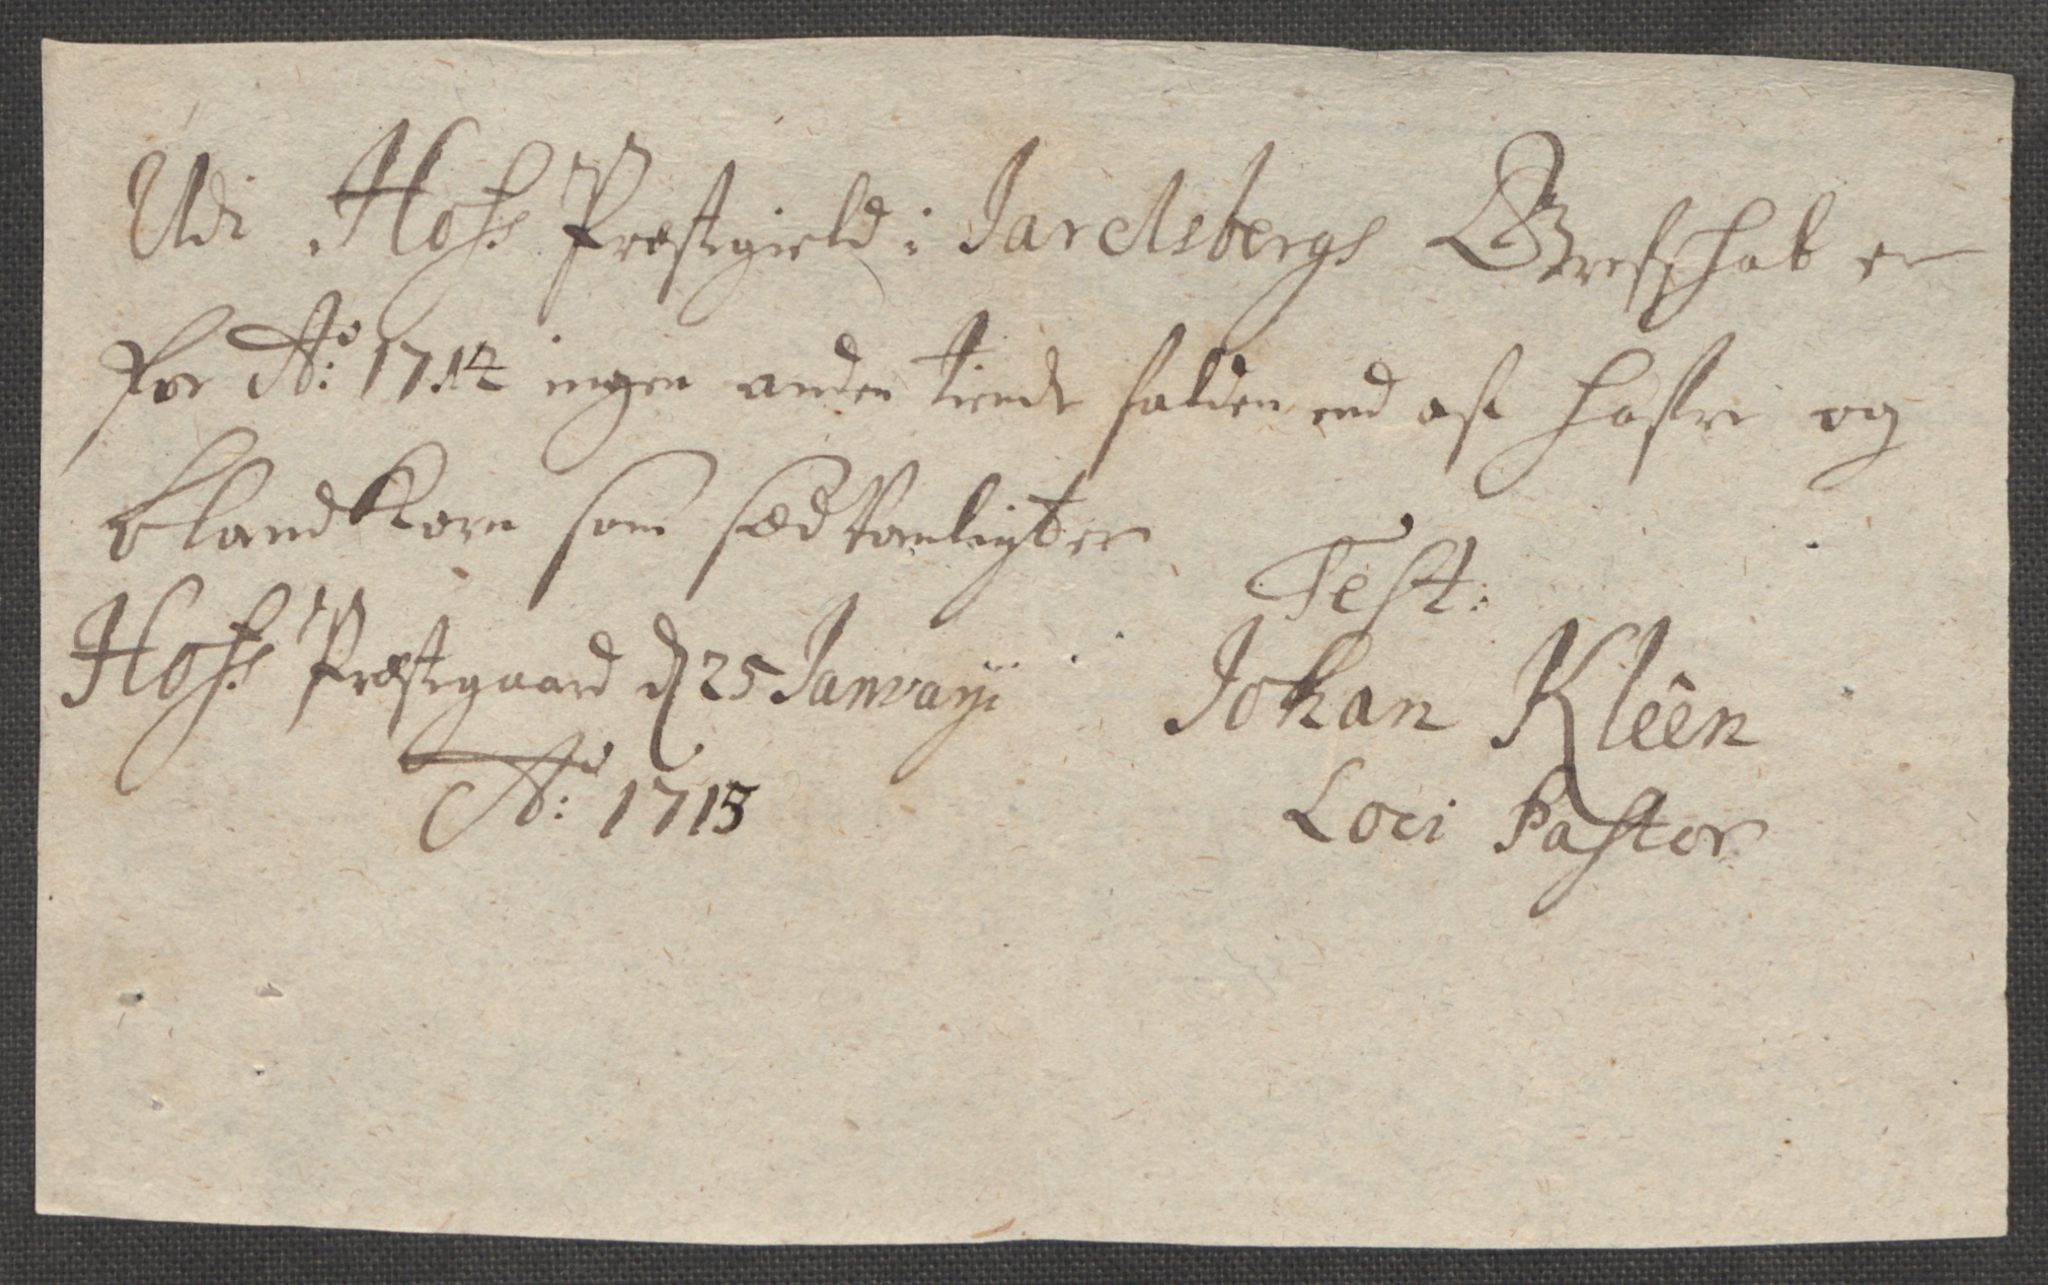 Udi Hofs Præstgield i Jarelsbergs Grefschab er
for Ao: 1714 ingen anden tiende falden end aff hafre og
blandkorn som sædvanligt er
Test:
Hofs Præstegaard d 25 Januarji
Johan Kleên
Ao: 1715
Loci Pastor